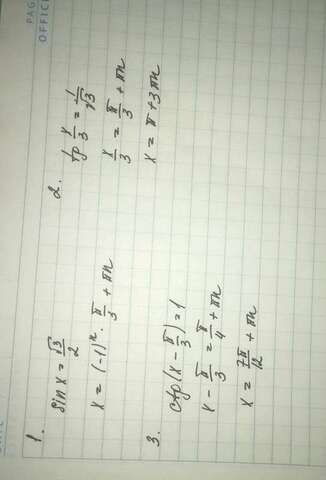 PAG
OFFICE
1.
sin x = √3/2
x = (-1)ⁿ · π/3 + πn
2.
tg x/3 = 1/√3
x/3 = π/3 + πn
x = π + 3πn
3.
ctg (x - π/3) = 1
x - π/3 = π/4 + πn
x = 7π/12 + πn